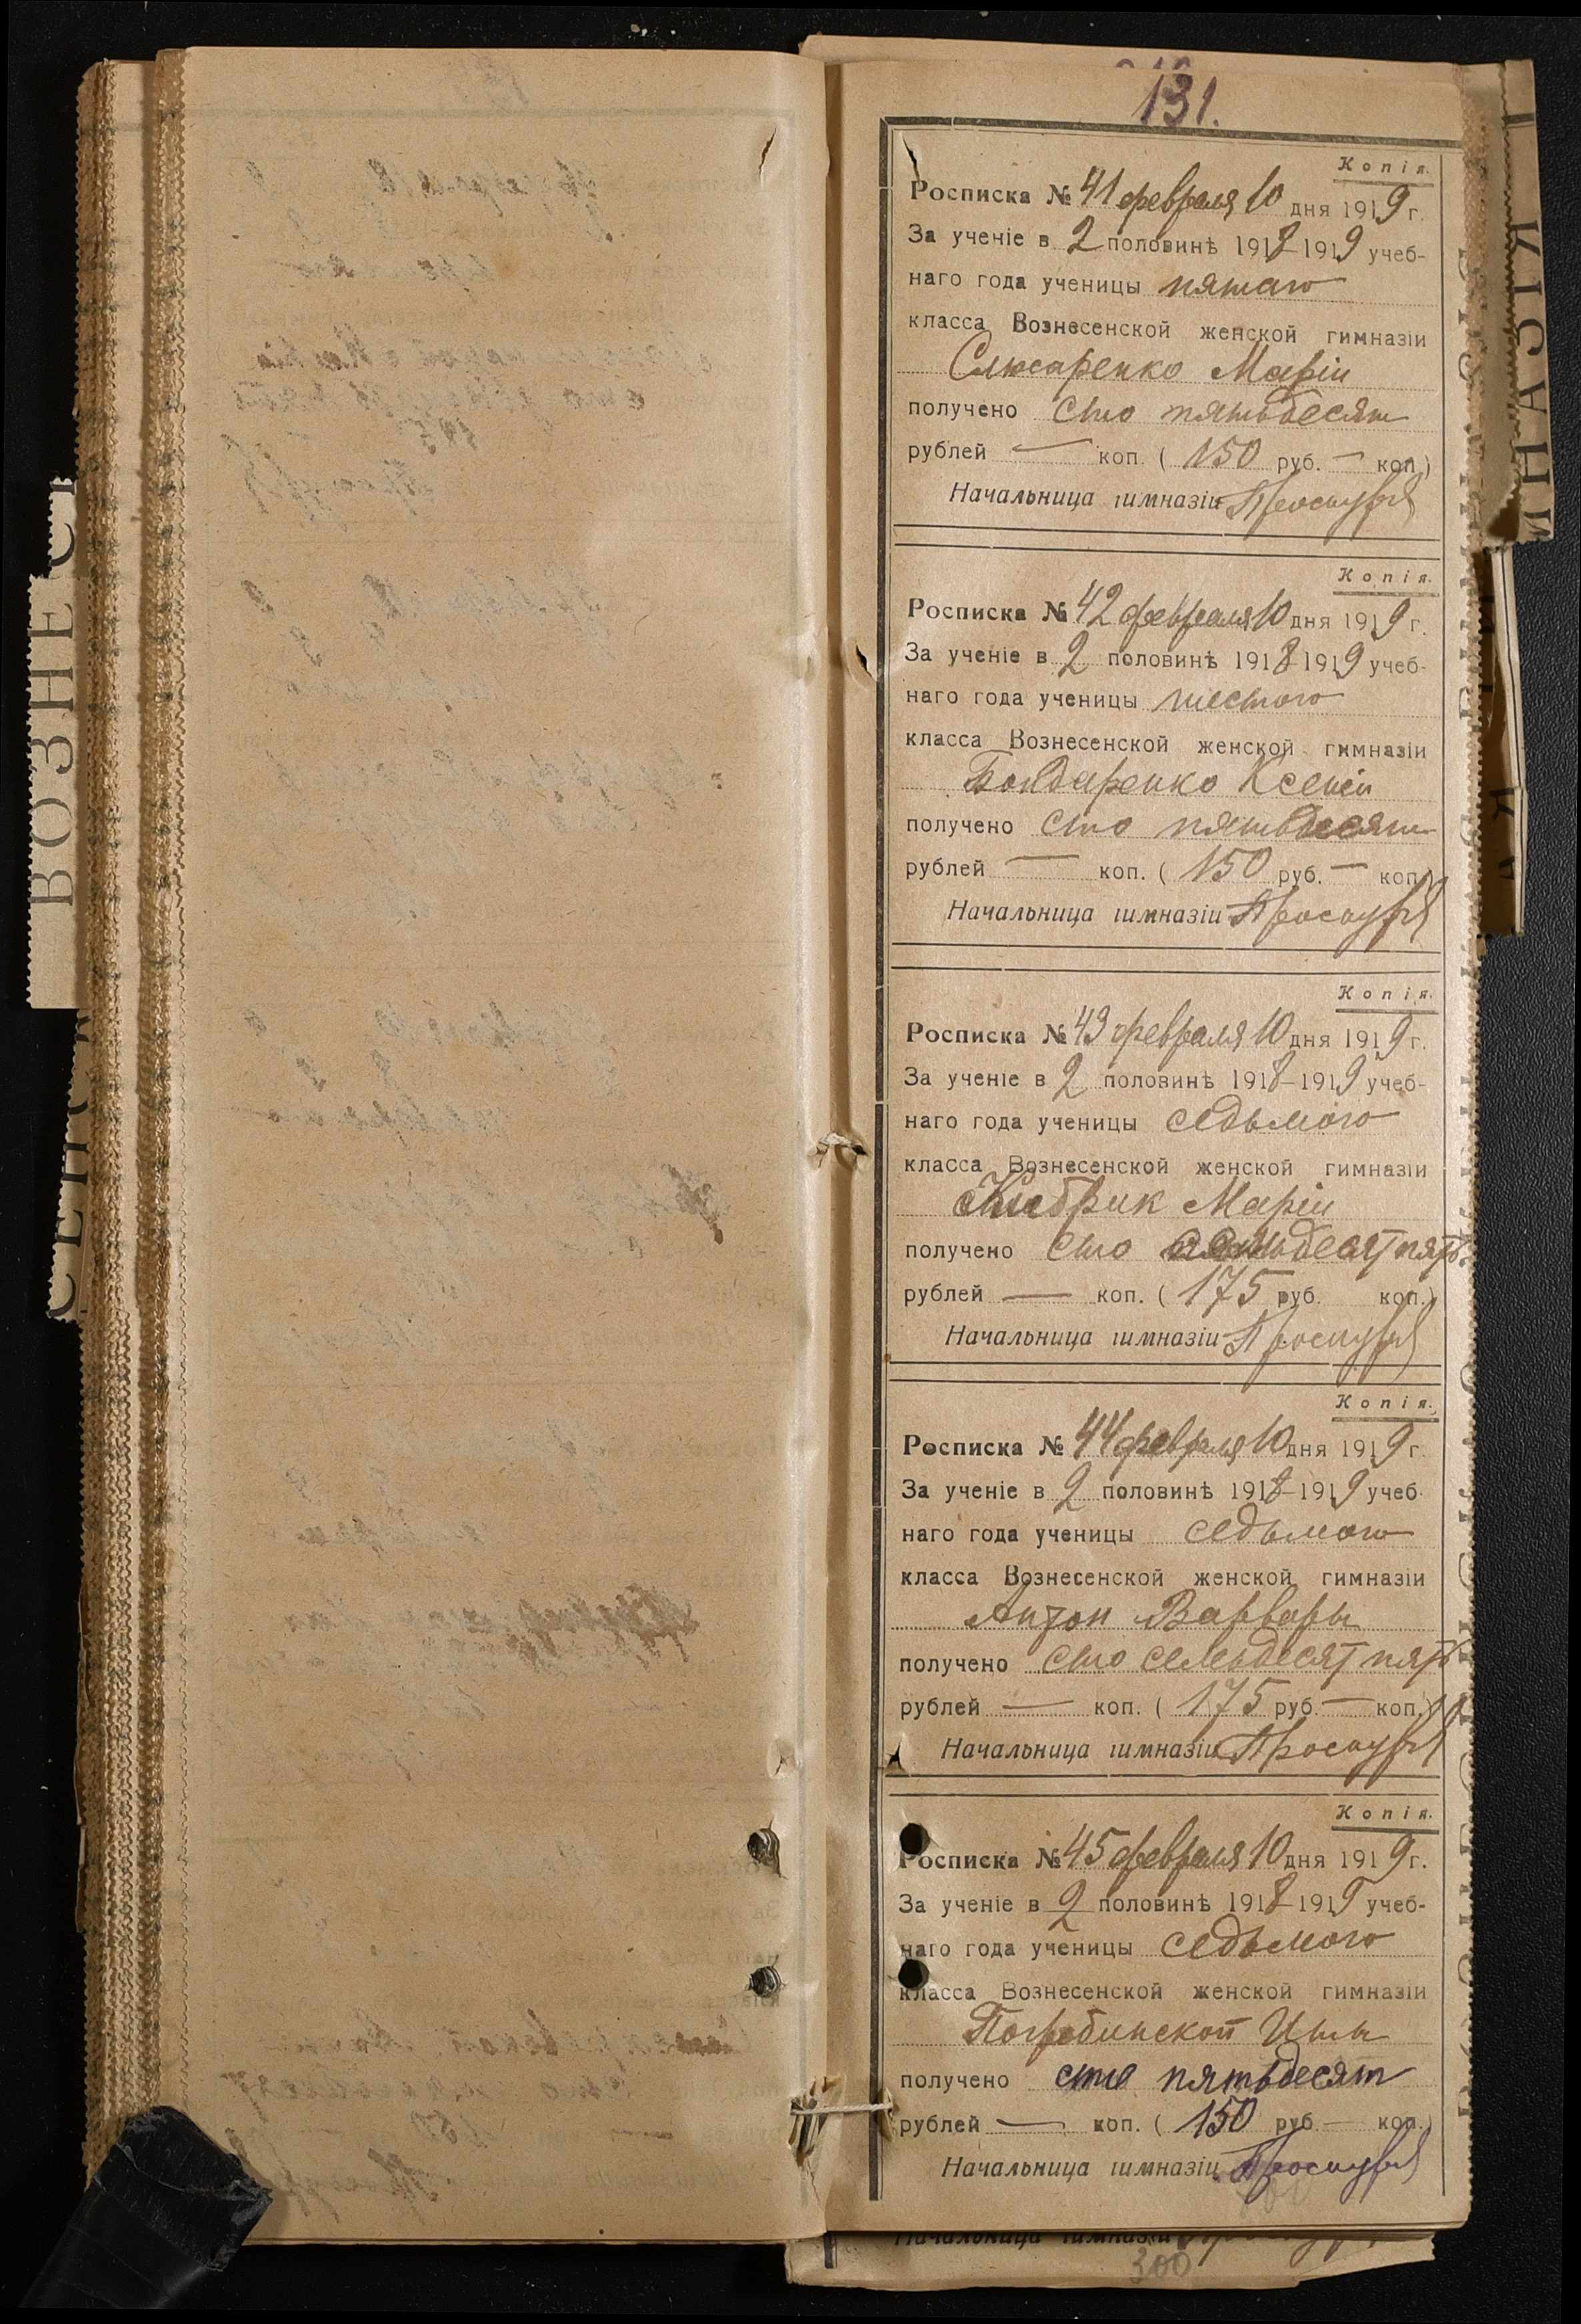 131.
Копія.
Росписка № 41 февраля 10 дня 1919 г.
За ученіе в 2 половинѣ 1918–1919 учеб-
наго года ученицы пятаго
класса Вознесенской женской гимназіи
Слюсаренко Маріи
получено сто пятьдесят
рублей — коп. ( 150 руб. — коп.)
Начальница гимназіи
Копія.
Росписка № 42 февраля 10 дня 1919 г.
За ученіе в 2 половинѣ 1918–1919 учеб-
наго года ученицы шестого
класса Вознесенской женской гимназіи
Бондаренко Ксеніи
получено сто пятьдесят
рублей — коп. ( 150 руб. — коп.)
Начальница гимназіи
Копія.
Росписка № 43 февраля 10 дня 1919 г.
За ученіе в 2 половинѣ 1918–1919 учеб-
наго года ученицы седьмого
класса Вознесенской женской гимназіи
Кибрик Маріи
получено сто семьдесят пять
рублей — коп. ( 175 руб. коп.)
Начальница гимназіи
Копія.
Росписка № 44 февраля 10 дня 1919 г.
За ученіе в 2 половинѣ 1918–1919 учеб-
наго года ученицы седьмого
класса Вознесенской женской гимназіи
Антон Варвары
получено сто семьдесят пять
рублей — коп. ( 175 руб. — коп.)
Начальница гимназіи
Копія.
Росписка № 45 февраля 10 дня 1919 г.
За ученіе в 2 половинѣ 1918–1919 учеб-
наго года ученицы седьмого
класса Вознесенской женской гимназіи
Погребинской
получено сто пятьдесят
рублей — коп. ( 150 руб. — коп.)
Начальница гимназіи
Начальница гимназіи
300
ВОЗНЕС